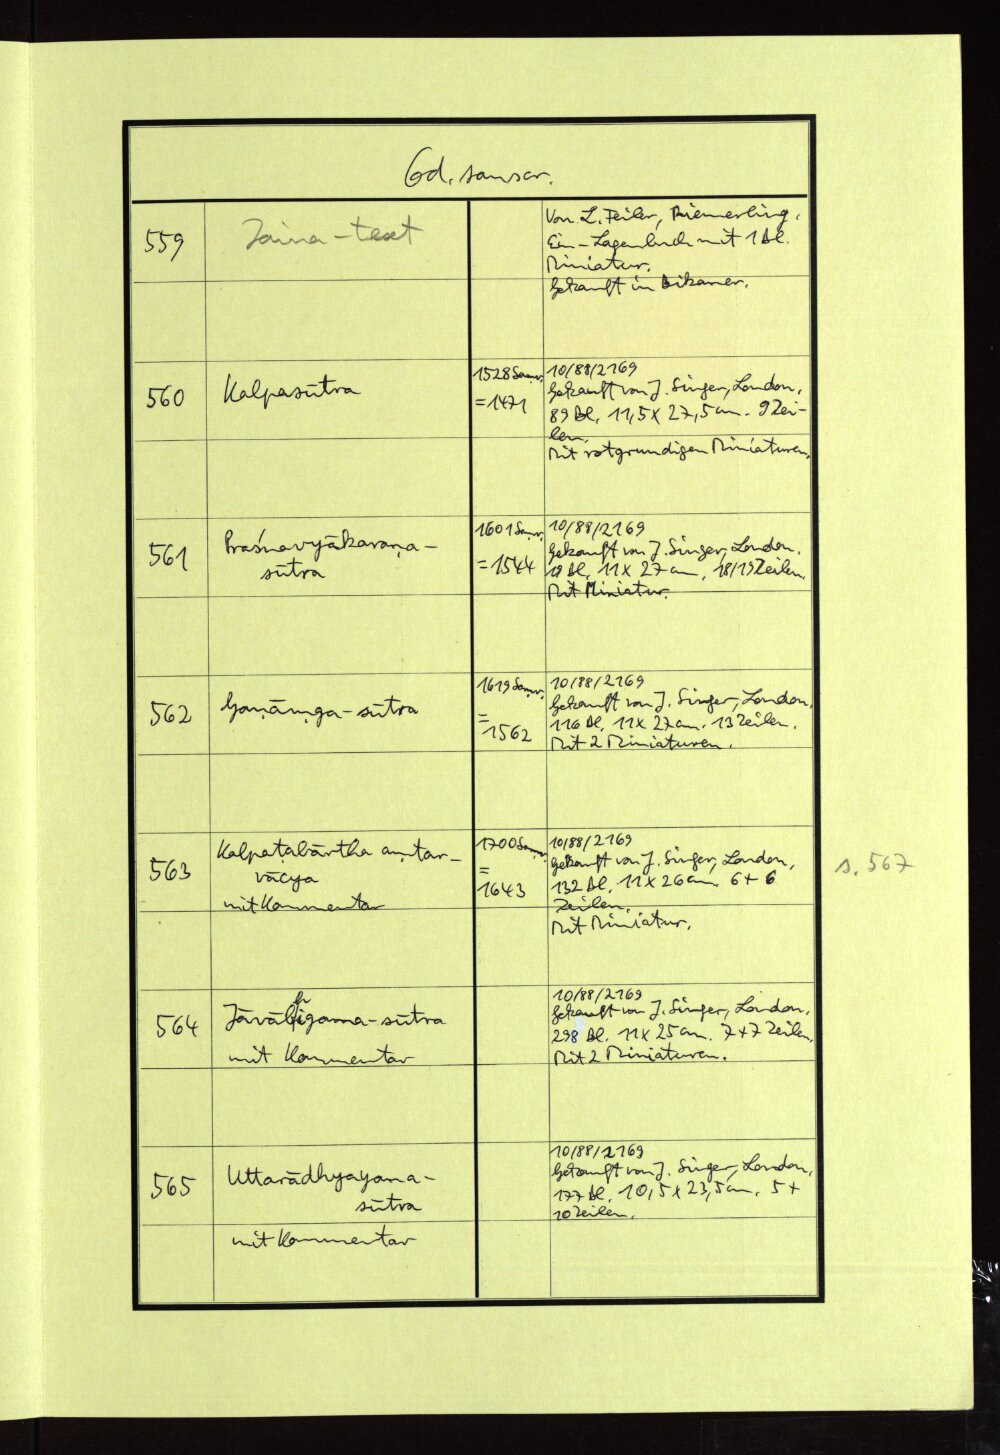 Cod. sanscr.
559
Jaina-text
Von L. Feiler, Riemerling.
Ein-Lagenbuch mit 1 Bl.
Miniatur.
Gekauft in Bikaner.
560
Kalpasūtra
1528 Saṃv.
=1471
10/88/2169
Gekauft von J. Singer, London.
89 Bl. 11,5 x 27,5 cm. 9 Zei-
len.
Mit rotgrundigen Miniaturen.
561
Praśnavyākaraṇa-
sūtra
1601 Saṃv.
=1544
10/88/2169
Gekauft von J. Singer, London.
19 Bl. 11 x 27 cm. 18/19 Zeilen.
Mit Miniatur.
562
Gaṇāṃga-sūtra
1619 Saṃv.
=
1562
10/88/2169
Gekauft von J. Singer, London.
116 Bl. 11 x 27 cm. 13 Zeilen.
Mit 2 Miniaturen.
563
Kalpaṭabārtha aṃtar-
vācya
mit Kommentar
1700 Saṃv.
=
1643
10/88/2169
Gekauft von J. Singer, London.
132 Bl. 11 x 26 cm. 6 + 6
Zeilen.
Mit Miniatur.
s. 567
564
mit Kommentar
10/88/2169
Gekauft von J. Singer, London.
298 Bl. 11 x 25 cm. 7+7 Zeilen.
Mit 2 Miniaturen.
565
Uttarādhyayana-
sūtra
mit Kommentar
10/88/2169
Gekauft von J. Singer, London.
177 Bl. 10,5 x 23,5 cm. 5 +
10 Zeilen.